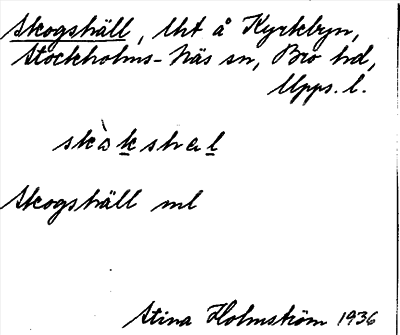 Skogshäll, lht å Kyrkbyn,
Stockholms-Näs sn, Bro hd,
Upps. l.
skò̱kshal
Skogshäll ml
Stina Holmström 1936